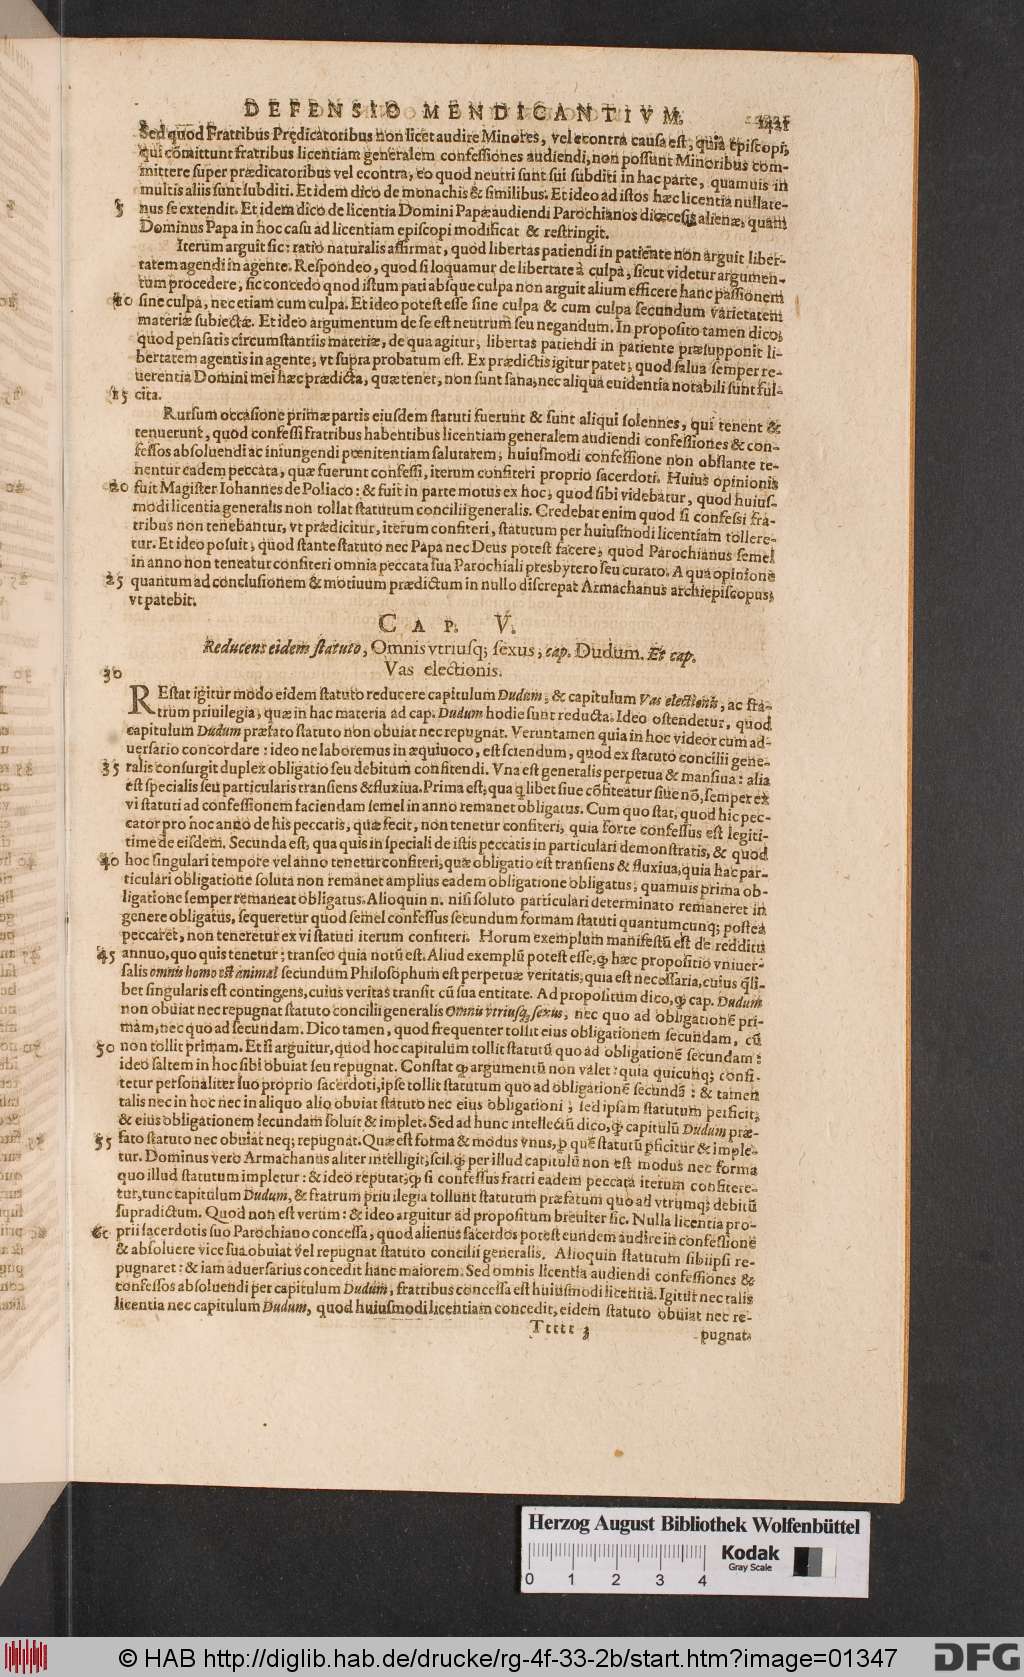 DEFENSIO MENDICANTIVM.
Sed quod Fratribus Prędicatoribus non licet audire Minores, vel econtra causa est, quia episcopi,
qui cõmittunt fratribus licentiam generalem confessiones audiendi, non possunt Minoribus com-
mittere super prædicatoribus vel econtra, eo quod neutri sunt sui subditi in hac parte, quamuis in
multis aliis sunt subditi. Et idem dico de monachis & similibus. Et ideo ad istos hæc licentia nullate-
5 nus se extendit. Et idem dico de licentia Domini Papæ audiendi Parochianos diœcesis alienæ, quam
Dominus Papa in hoc casu ad licentiam episcopi modificat & restringit.
Iterum arguit sic: ratio naturalis affirmat, quod libertas patiendi in patiente non arguit liber-
tatem agendi in agente. Respondeo, quod si loquamur de libertate à culpa, sicut videtur argumen-
tum procedere, sic concedo quod istum pati absque culpa non arguit alium efficere hanc passionem
10 sine culpa, nec etiam cum culpa. Et ideo potest esse sine culpa & cum culpa secundum varietatem
materiæ subiectæ. Et ideo argumentum de se est neutrum seu negandum. In proposito tamen dico,
quod pensatis circumstantiis materiæ, de qua agitur, libertas patiendi in patiente præsupponit li-
bertatem agentis in agente, vt supra probatum est. Ex prædictis igitur patet, quod salua semper re-
uerentia Domini mei hæc prædicta, quæ tenet, non sunt sana, nec aliqua euidentia notabili sunt ful-
15 cita.
Rursum occasione primæ partis eiusdem statuti fuerunt & sunt aliqui solennes, qui tenent &
tenuerunt, quod confessi fratribus habentibus licentiam generalem audiendi confessiones & con-
fessos absoluendi ac iniungendi pœnitentiam salutarem, huiusmodi confessione non obstante te-
nentur eadem peccata, quæ fuerunt confessi, iterum confiteri proprio sacerdoti. Huius opinionis
20 fuit Magister Iohannes de Poliaco: & fuit in parte motus ex hoc, quod sibi videbatur, quod huius-
modi licentia generalis non tollat statutum concilii generalis. Credebat enim quod si confessi fra-
tribus non tenebantur, vt prædicitur, iterum confiteri, statutum per huiusmodi licentiam tollere-
tur. Et ideo posuit, quod stante statuto nec Papa nec Deus potest facere, quod Parochianus semel
in anno non teneatur confiteri omnia peccata sua Parochiali presbytero seu curato. A qua opinione
25 quantum ad conclusionem & motiuum prædictum in nullo discrepat Armachanus archiepiscopus,
vt patebit.
CAP. V.
Reducens eidem statuto, Omnis vtriusq; sexus, cap. Dudum. Et cap.
30 Vas electionis.
REstat igitur modo eidem statuto reducere capitulum Dudum, & capitulum Vas electionis, ac fra-
trum priuilegia, quæ in hac materia ad cap. Dudum hodie sunt reducta. Ideo ostendetur, quod
capitulum Dudum præfato statuto non obuiat nec repugnat. Veruntamen quia in hoc videor cum ad-
uersario concordare: ideo ne laboremus in æquiuoco, est sciendum, quod ex statuto concilii gene-
35 ralis consurgit duplex obligatio seu debitum confitendi. Vna est generalis perpetua & mansiua: alia
est specialis seu particularis transiens & fluxiua. Prima est, qua q̃libet siue cõfiteatur siue nõ, semper ex
vi statuti ad confessionem faciendam semel in anno remanet obligatus. Cum quo stat, quod hic pec-
cator pro hoc anno de his peccatis, quæ fecit, non tenetur confiteri, quia forte confessus est legiti-
time de eisdem. Secunda est, qua quis in speciali de istis peccatis in particulari demonstratis, & quod
40 hoc singulari tempore vel anno tenetur confiteri, quæ obligatio est transiens & fluxiua, quia hac par-
ticulari obligatione soluta non remanet amplius eadem obligatione obligatus, quamuis prima ob-
ligatione semper remaneat obligatus. Alioquin n. nisi soluto particulari determinato remaneret in
genere obligatus, sequeretur quod semel confessus secundum formam statuti quantumcunq; postea
peccaret, non teneretur ex vi statuti iterum confiteri. Horum exemplum manifestũ est de redditu
45 annuo, quo quis tenetur; transeo quia notũ est. Aliud exemplũ potest esse, ꝙ hæc propositio vniuer-
salis omnis homo est animal secundum Philosophum est perpetuæ veritatis, quia est necessaria, cuius q̃li-
bet singularis est contingens, cuius veritas transit cũ sua entitate. Ad propositum dico, ꝙ cap. Dudum
non obuiat nec repugnat statuto concilii generalis Omnis vtriusq; sexus, nec quo ad obligationẽ pri-
mam, nec quo ad secundam. Dico tamen, quod frequenter tollit eius obligationem secundam, cũ
50 non tollit primam. Et si arguitur, quod hoc capitulum tollit statutũ quo ad obligationẽ secundam:
ideo saltem in hoc sibi obuiat seu repugnat. Constat ꝙ argumentũ non valet: quia quicunq; confi-
tetur personaliter suo proprio sacerdoti, ipse tollit statutum quo ad obligationẽ secundã: & tamen
talis nec in hoc nec in aliquo alio obuiat statuto nec eius obligationi; sed ipsam statutum perficit,
& eius obligationem secundam soluit & implet. Sed ad hunc intellectũ dico, ꝙ capitulũ Dudum præ-
55 fato statuto nec obuiat neq; repugnat. Quæ est forma & modus vnus, ꝑ quẽ statutũ ꝑficitur & imple-
tur. Dominus vero Armachanus aliter intelligit, scil. ꝙ per illud capitulũ non est modus nec forma
quo illud statutum impletur: & ideo reputat, ꝙ si confessus fratri eadem peccata iterum confitere-
tur, tunc capitulum Dudum, & fratrum priuilegia tollunt statutum præfatum quo ad vtrumq; debitũ
supradictum. Quod non est verum: & ideo arguitur ad propositum breuiter sic. Nulla licentia pro-
60 prii sacerdotis suo Parochiano concessa, quod alienus sacerdos potest eundem audire in confessionẽ
& absoluere vice sua obuiat vel repugnat statuto concilii generalis. Alioquin statutum sibiipsi re-
pugnaret: & iam aduersarius concedit hanc maiorem. Sed omnis licentia audiendi confessiones &
confessos absoluendi per capitulum Dudum, fratribus concessa est huiusmodi licentia. Igitur nec talis
licentia nec capitulum Dudum, quod huiusmodi licentiam concedit, eidem statuto obuiat nec re-
Ttttt 3 pugnat.
Herzog August Bibliothek Wolfenbüttel
Kodak
Gray Scale
0 1 2 3 4
© HAB http://diglib.hab.de/drucke/rg-4f-33-2b/start.htm?image=01347
DFG